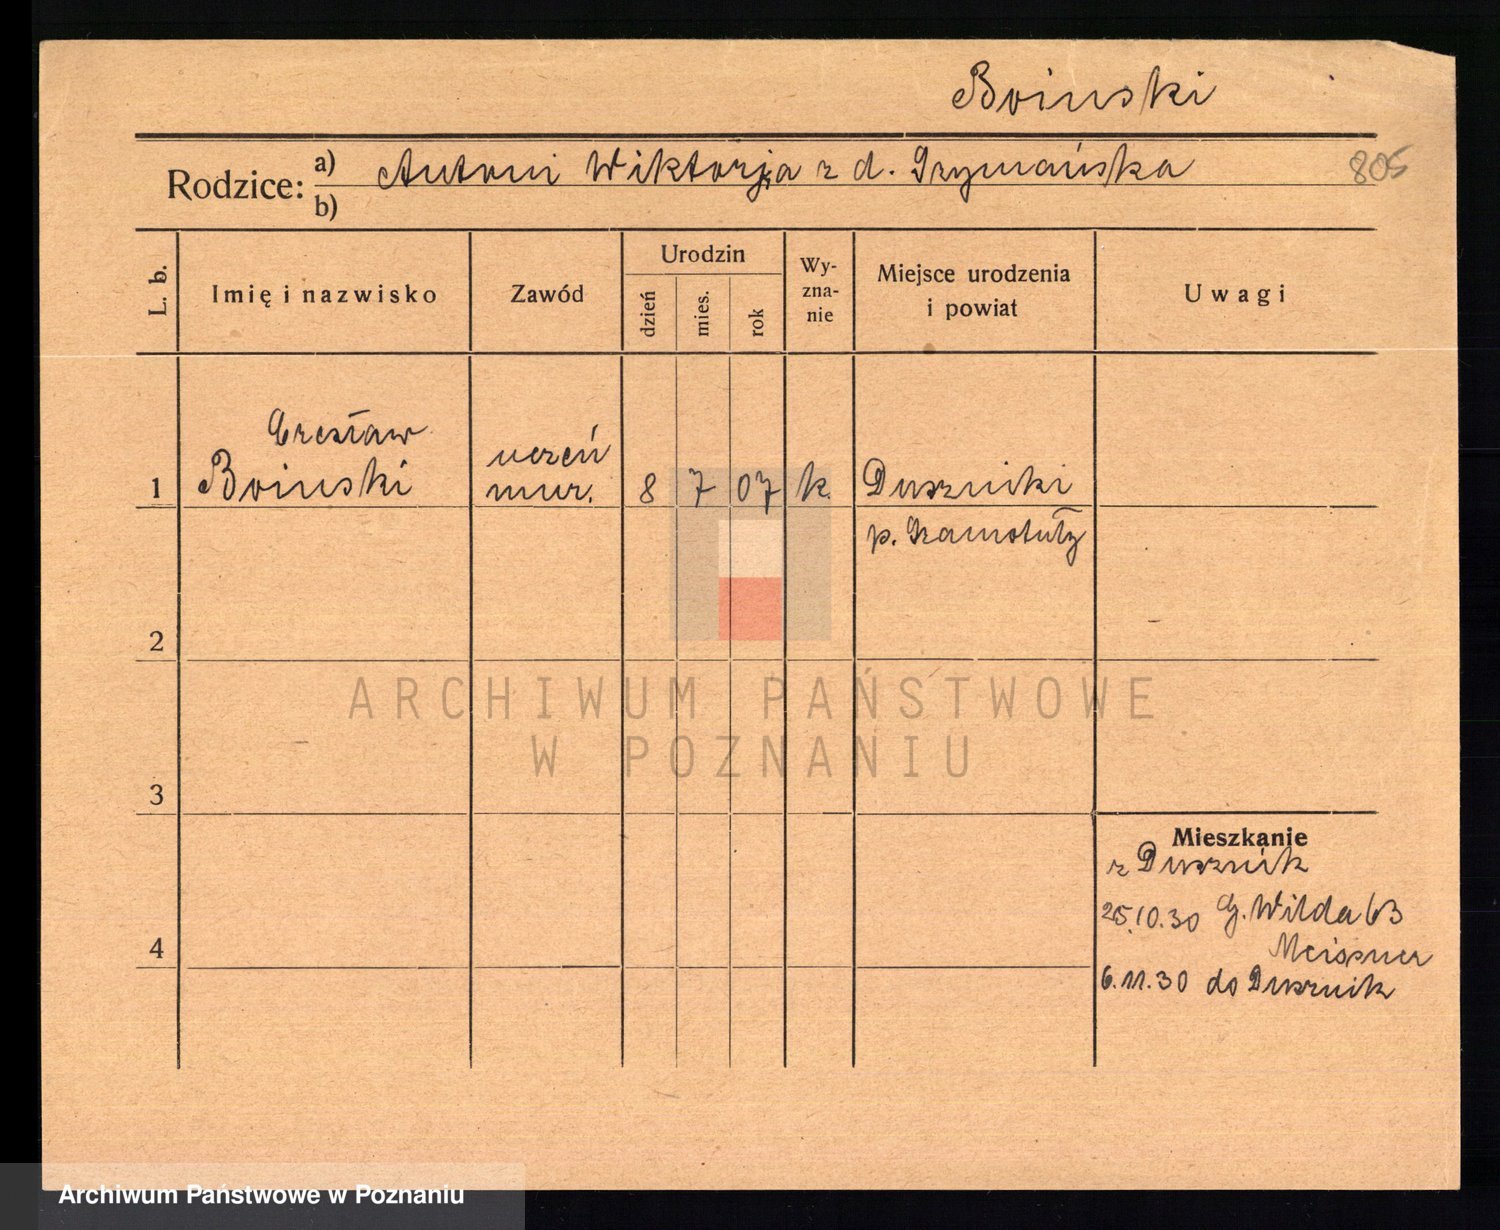 Boinski
Rodzice: a) Antoni Wiktorja z d. Szymańska 805
b)
L. b. Imię i nazwisko Zawód Urodzin dzień mies. rok Wy-zna-nie Miejsce urodzenia i powiat Uwagi
Czesław
1 Boinski uczeń mur. 8 7 07 k. Duszniki
p. Szamotuły
2
3
4
Mieszkanie
z Dusznik
25.10.30 G. Wilda 63
Meissner
6.11.30 do Dusznik
ARCHIWUM PAŃSTWOWE
W POZNANIU
Archiwum Państwowe w Poznaniu